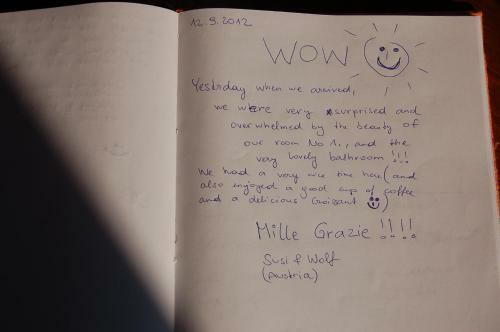 12.9.2012
WOW
Yesterday when we arrived,
we were very surprised and
overwhelmed by the beauty of
our room No 1., and the
very lovely bathroom !!!
We had a very nice time here (and
also enjoyed a good cup of coffee
and a delicious Croissant)
Mille Grazie !!!!
Susi & Wolf
(Austria)